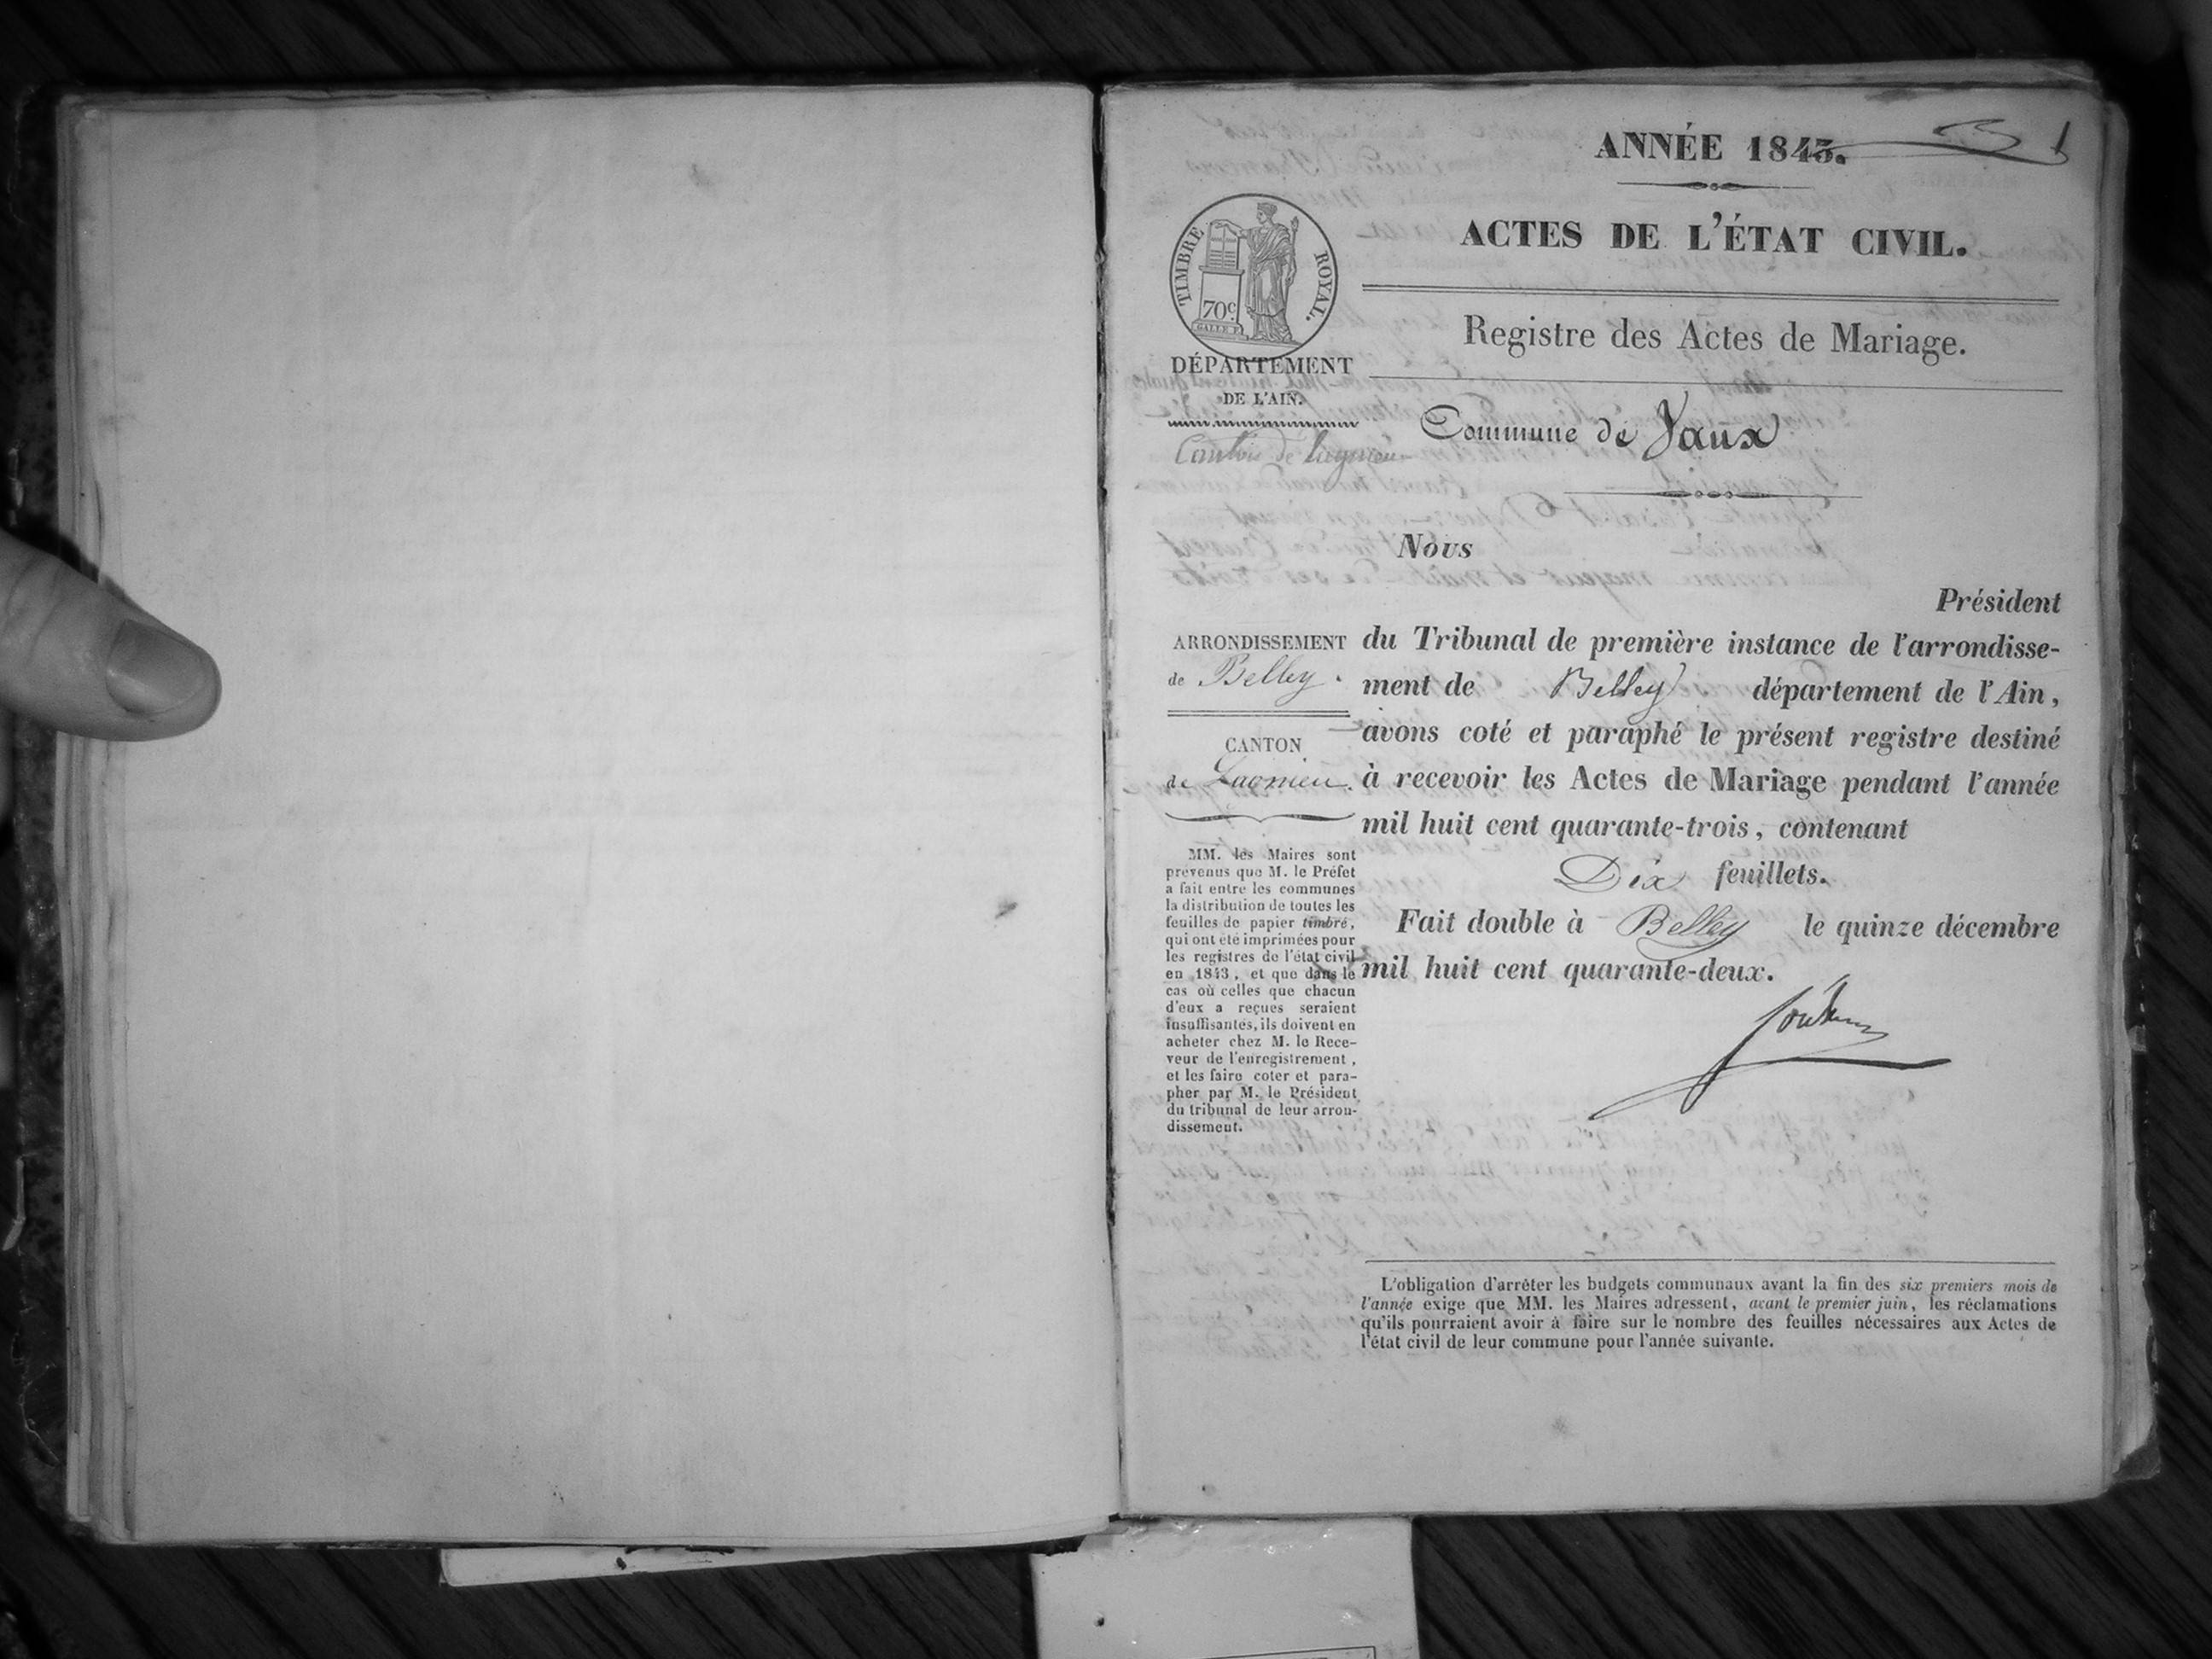 ANNÉE 1843. 1
TIMBRE ROYAL.
70c.
GALLE F.
ACTES DE L'ÉTAT CIVIL.
Registre des Actes de Mariage.
DÉPARTEMENT
DE L'AIN.
Canton de Lagnieu
Commune de Vaux
Nous
Président
ARRONDISSEMENT
de Belley.
CANTON
de Lagnieu.
du Tribunal de première instance de l'arrondisse-
ment de Belley département de l'Ain,
avons coté et paraphé le présent registre destiné
à recevoir les Actes de Mariage pendant l'année
mil huit cent quarante-trois, contenant
Dix feuillets.
Fait double à Belley le quinze décembre
mil huit cent quarante-deux.
MM. les Maires sont
prévenus que M. le Préfet
a fait entre les communes
la distribution de toutes les
feuilles de papier timbré,
qui ont été imprimées pour
les registres de l'état civil
en 1843, et que dans le
cas où celles que chacun
d'eux a reçues seraient
insuffisantes, ils doivent en
acheter chez M. le Rece-
veur de l'enregistrement,
et les faire coter et para-
pher par M. le Président
du tribunal de leur arron-
dissement.
L'obligation d'arrêter les budgets communaux avant la fin des six premiers mois de
l'année exige que MM. les Maires adressent, avant le premier juin, les réclamations
qu'ils pourraient avoir à faire sur le nombre des feuilles nécessaires aux Actes de
l'état civil de leur commune pour l'année suivante.